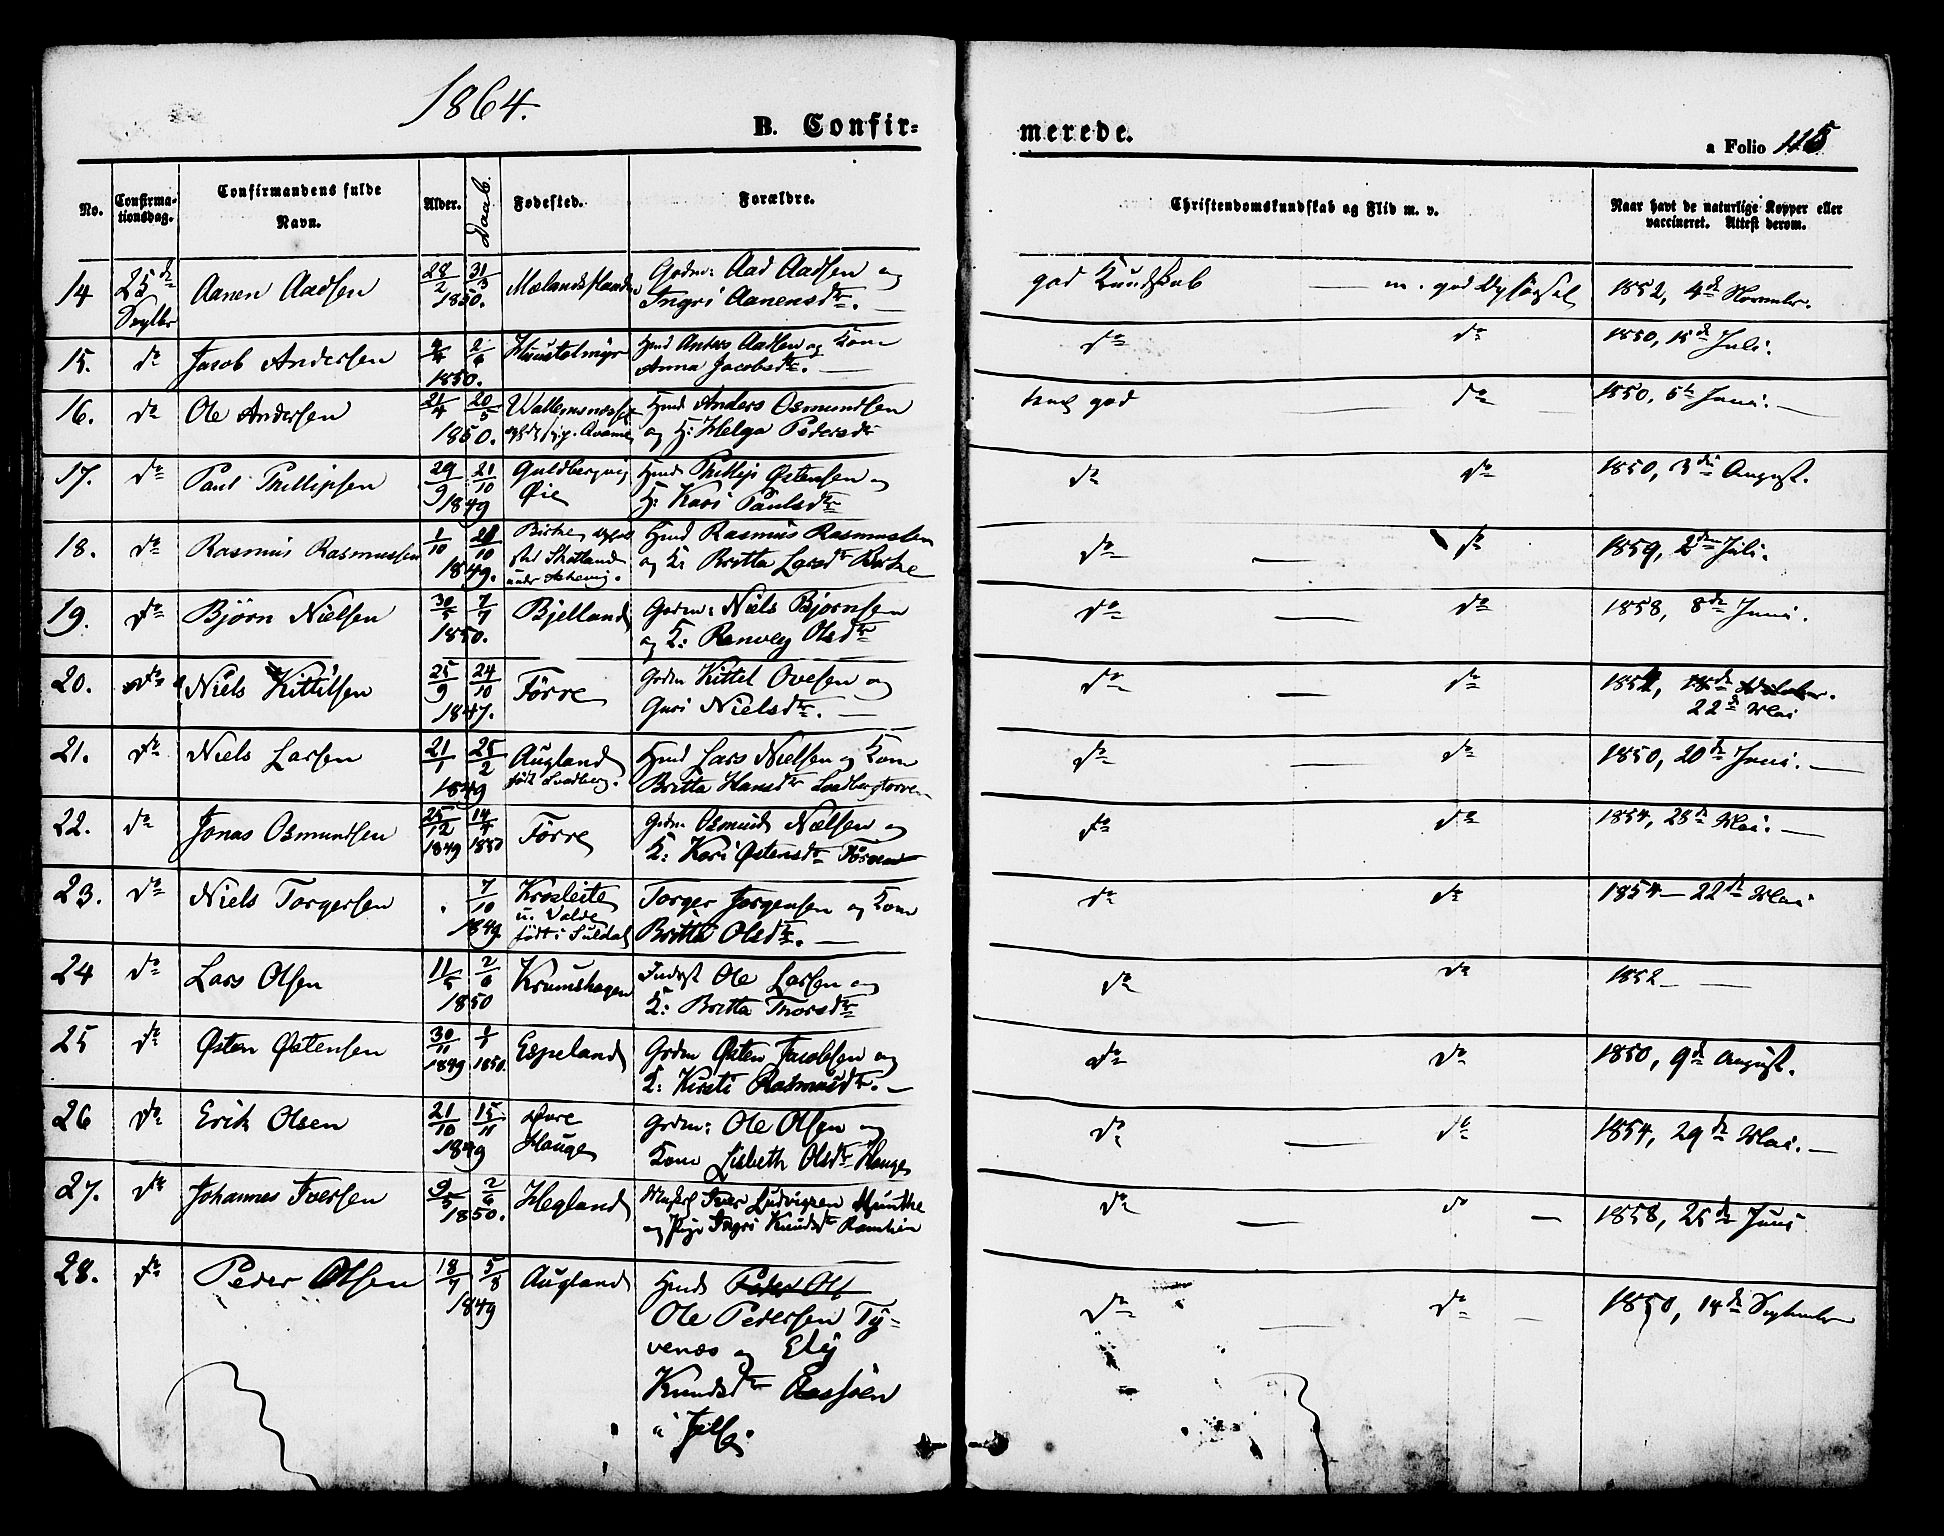 1864.
B. Confir-
merede.
a Folio 115
No.
Confirma-
tionsdag.
Confirmandens fulde
Navn.
Alder.
Daab.
Fødested.
Forældre.
Christendomskundskab og Flid m. v.
Naar havt de naturlige Kopper eller
vaccineret. Attest derom.
14 25de Septbr Aanen Aadsen 28/2 31/3 1850. Gdm: Aad Aadsen og
Ingri Aanensdtr. —
god Kundskab — m. god Opførsel 1852, 4de November.
15. do Jacob Andersen 2/6 1850. Hmd Anders Aadsen og Kone
Anna Jacobsdtr. —
do do 1850, 15de Juli.
16. do Ole Andersen 21/4 20/5 1850. Hmd Anders Osmundsen
og H: Helga Pedersdtr
god — do — 1850, 6te Juni. —
17. do Paul Phillipsen 29/9 21/10 1849 Guldbergvig
Øie
Hmd Phillip Østensen og
H: Kari Paulsdtr
do do 1850, 3die August.
18. do Rasmus Rasmussen 1/10 28/10 1849. Birke
Hmd Rasmus Rasmussen
og K: Britta Larsdtr Birke
do — do 1859, 2den Juli.
19. do Bjørn Nielsen 30/5 7/7 1850. Bjelland
Gdm: Niels Bjørnsen
og K: Ranveg Olsdtr
do — do 1858, 8de Juni.
20. do Niels Kittilsen 25/9 24/10 1847. Førre
Gdm Kittel Ovesen og
Guri Nielsdtr. —
do — do 1854,
22de Mai
21. do Niels Larsen 21/1 25/2 1849 Augland
født Svadberg.
Hmd Lars Nielsen og Kone
Britta Hansdtr
do — do 1850, 20de Juni. —
22. do Jonas Osmundsen 25/12 1849 14/4 1850 Førre
Gdm Osmund Nielsen og
K: Kari Østensdtr
do do 1854, 28de Mai. —
23. do Niels Torgersen 7/10 1849 Krosleite
u. Valde
født i Suldal
Torger Jørgensen og Kone
Britta Olsdtr. —
do do 1854 — 22de Mai
24 do Lars Olsen 11/5 2/6 1850 Krumshagen
Inderst Ole Larsen og
K: Britta Thorsdtr
do do 1852 — —
25 do Østen Østensen 30/11 1849 1/1 1850. Espeland
Gdm Østen Jacobsen og
K: Kirsti Rasmusdtr. —
do do 1850, 9de August.
26 do Erik Olsen 21/10 15/11 1849 Øvre
Hauge
Gdm: Ole Olsen og
Kone Lisbeth Olsdtr Hauge
do — do 1854, 29de Mai. —
27. do Johannes Iversen 9/5 2/6 1850. Hegland
Iver Ludvigsen Munthe
og Pige Ingri Knudsdtr
do — do — 1858, 25de Juni
28. do Peder Olsen 18/7 5/8 1849 Augland
Hmd Peder Ols
Ole Pedersen Ty-
venæs og Eli
Knudsdtr
i Jelse.
do — do — 1850, 14de September